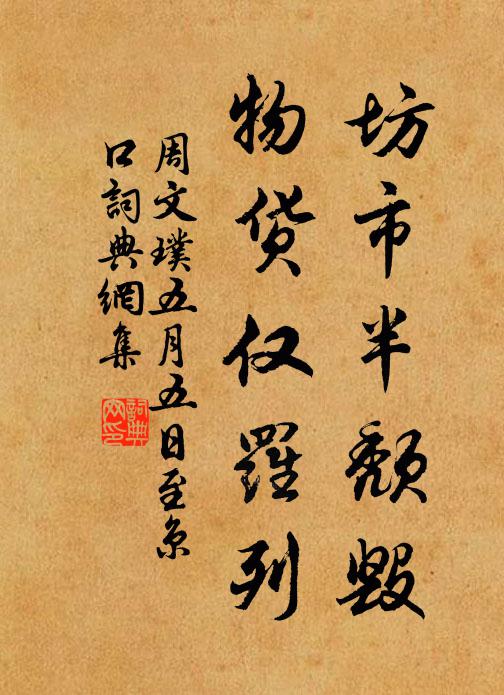 坊市半颓毁
物货仅羅列
周文璞五月五日至京
口詞典網集
詞典
网印